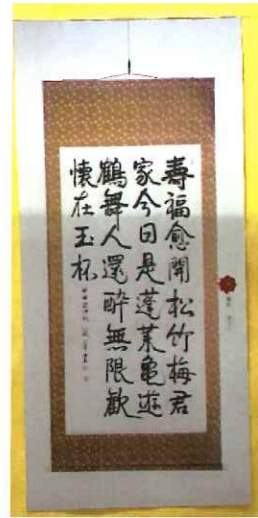 壽福愈開松竹梅君
家今日是蓬莱龜遊
鶴舞人還醉無限歡
懷在玉杯